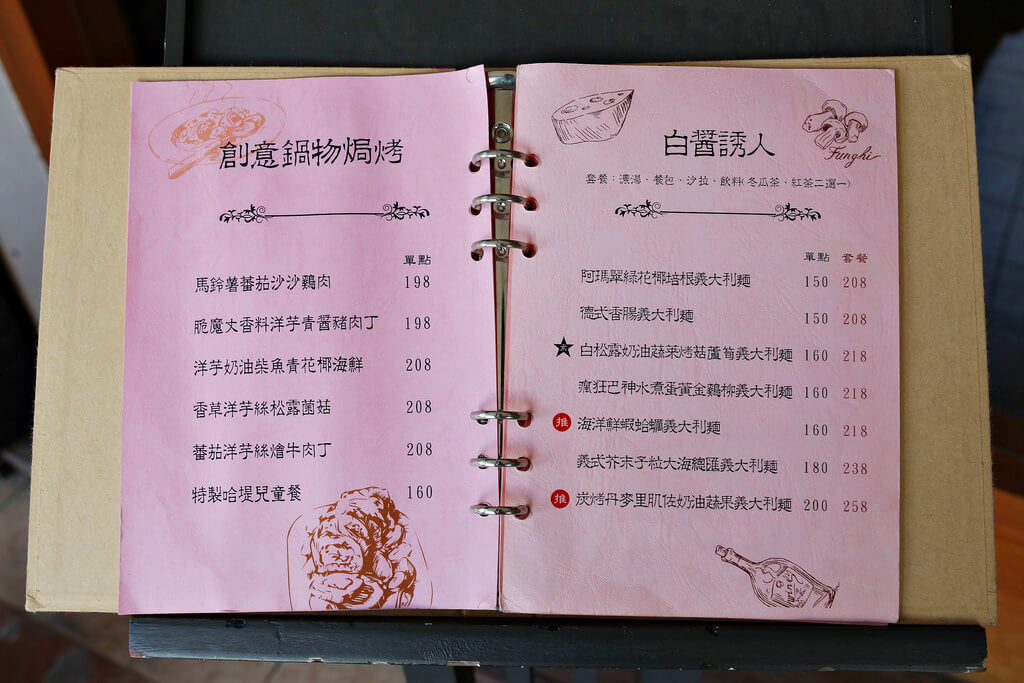 創意鍋物焗烤
單點
馬鈴薯蕃茄沙沙鷄肉 198
脆魔大香料洋芋青醬豬肉丁 198
洋芋奶油柴魚青花椰海鮮 208
香草洋芋絲松露菌菇 208
蕃茄洋芋絲燴牛肉丁 208
特製哈堤兒童餐 160
Funghi
白醬誘人
套餐：濃湯、餐包、沙拉、飲料(冬瓜茶、紅茶二選一)
單點 套餐
阿瑪翠綠花椰培根義大利麵 150 208
德式香腸義大利麵 150 208
白松露奶油蔬菜烤菇蘆筍義大利麵 160 218
瘋狂巴神水煮蛋黃金鷄柳義大利麵 160 218
推 海洋鮮蝦蛤蠣義大利麵 160 218
義式芥末子粒大海總匯義大利麵 180 238
推 炭烤丹麥里肌佐奶油蔬果義大利麵 200 258